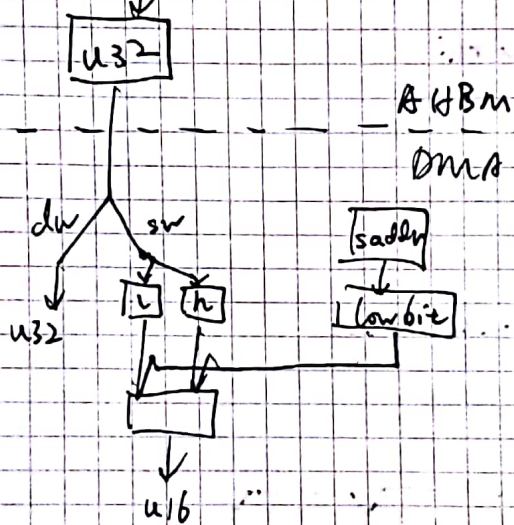 u32
AHBM
DMA
dw
sw
saddr
l
h
low bit
u32
u16